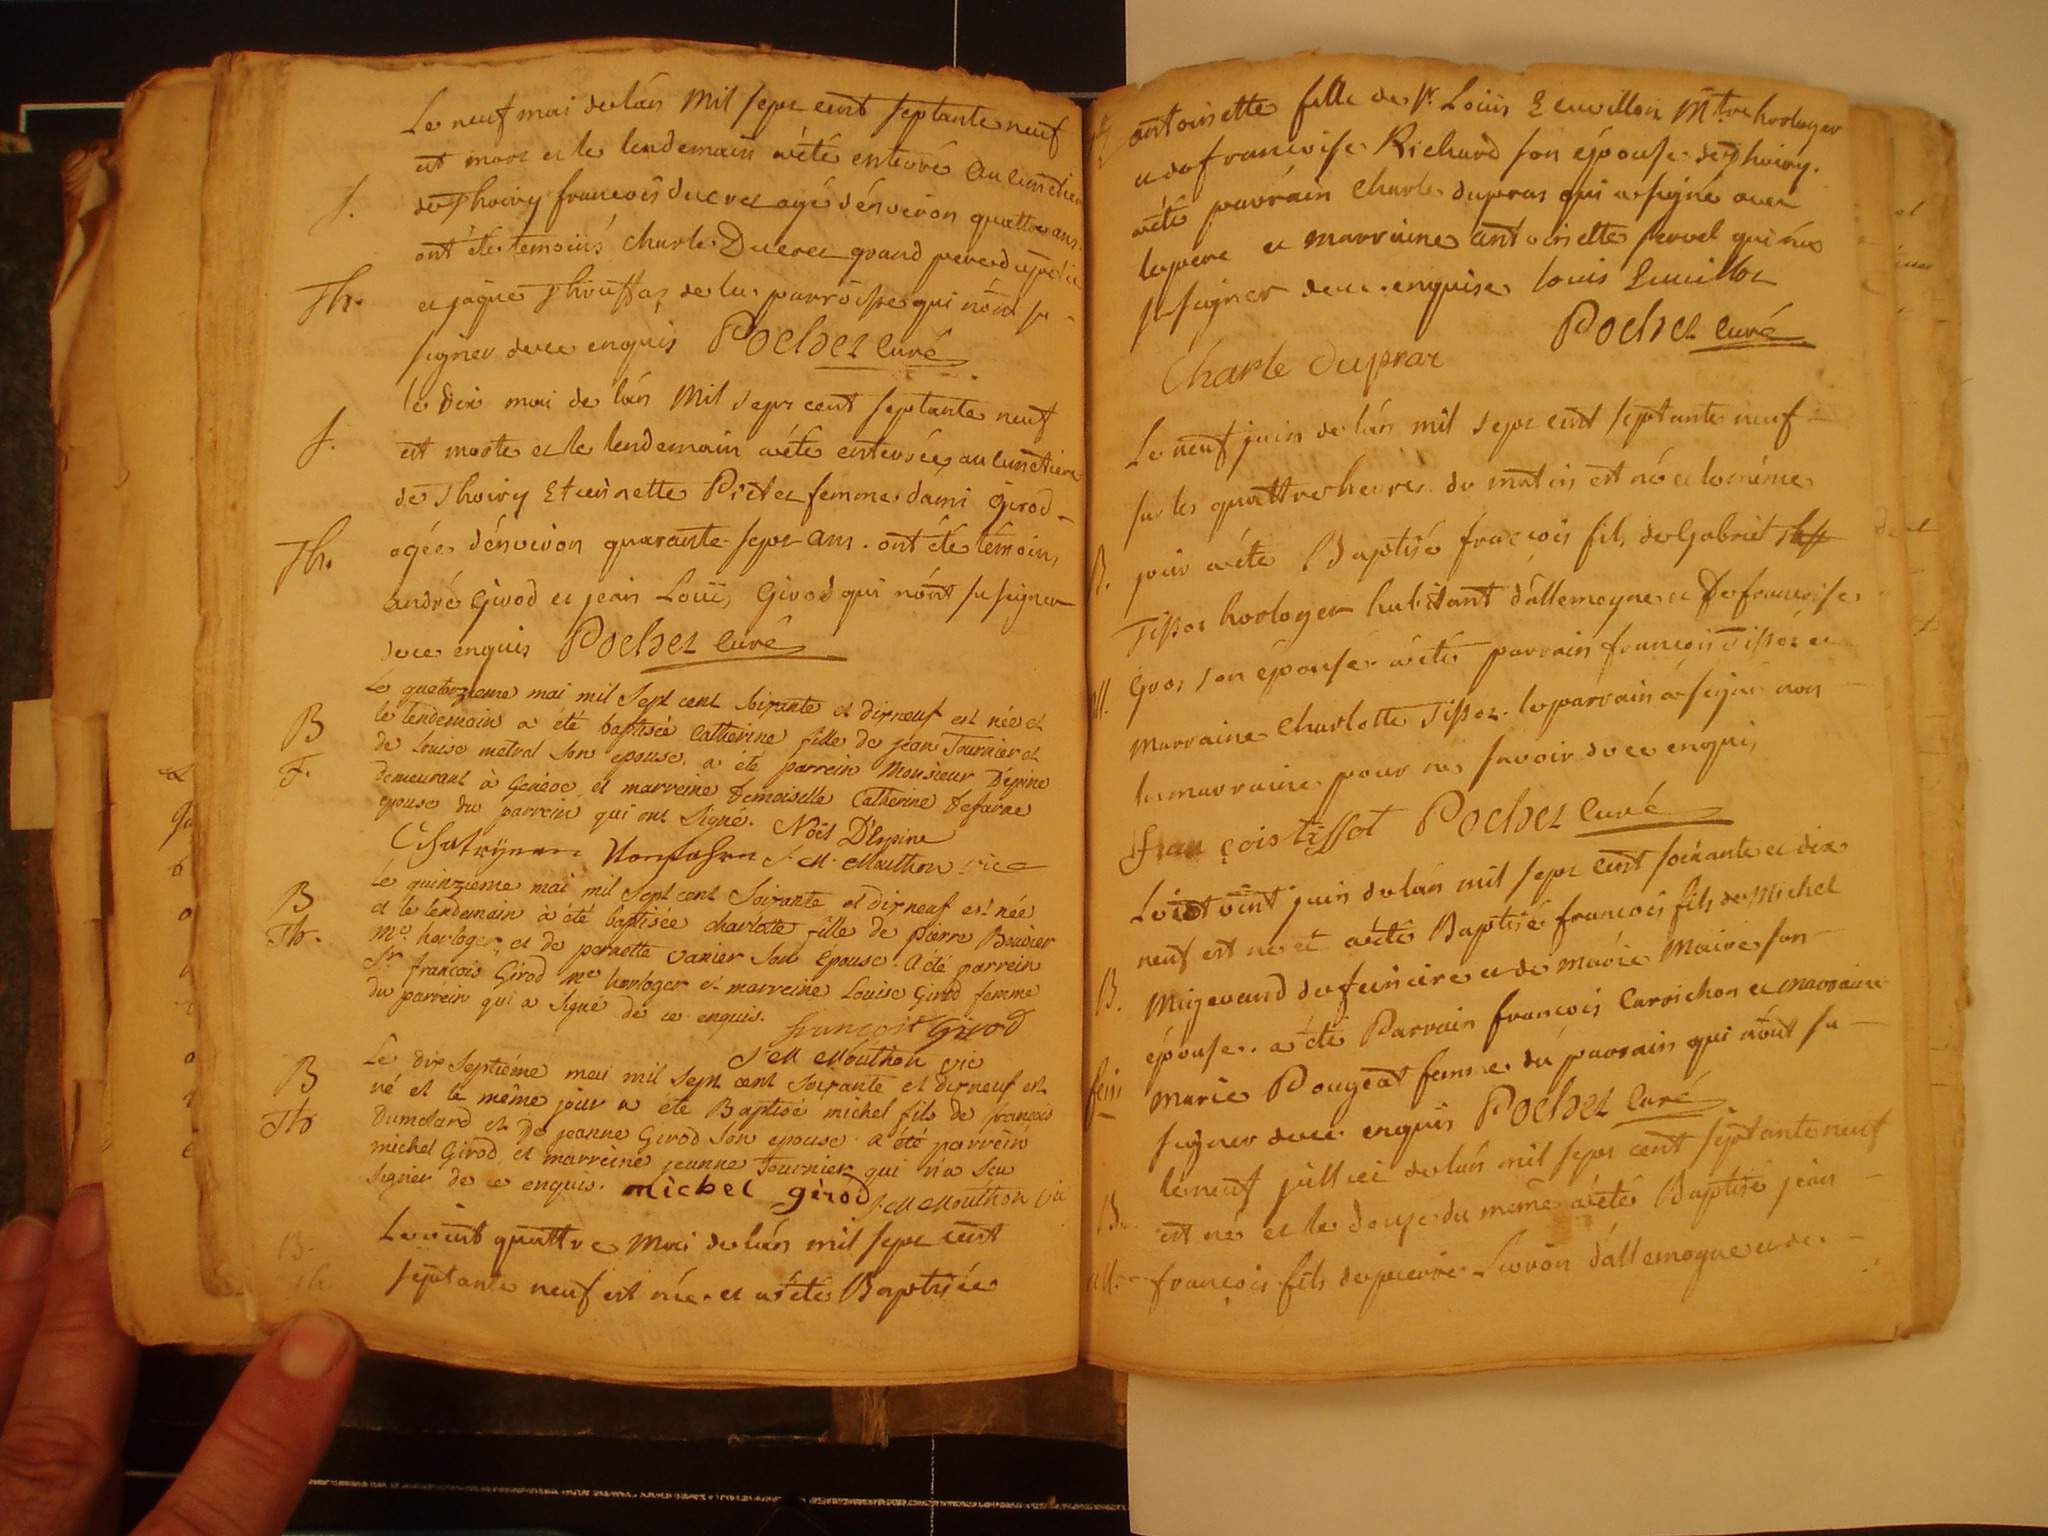 Le neuf mai de lán Mil sept cent septante neuf
est mort et le lendemain aété enterré au cimetiere
S.
de Thoiry francois Ducret agé dénviron quattre ans.
ont été temoins charle Ducret grand pere
Th.
et jaque Thouttaz de la parroisse qui nónt su
signer dece enquis Pochet Curé
le dix mai de lán Mil sept cent septante neuf
S.
est morte et le lendemain aété enterrée au cimetiere
de Thoiry Etiennette Pictet femme dami Girod
Th.
agée dénviron quarante sept ans. ont été témoins
andré Girod et jean Louïs Girod qui nónt su signer
dece enquis Pochet Curé
Le quatorzieme mai mil sept cent soixante et dixneuf est née et
B
le lendemain a été baptisée Catherine fille de jean Tournier et
de Louise metral son epouse. a été parrein Monsieur Dépine
F.
demeurant à Genève et marreine demoiselle Catherine
epouse du parrein qui ont signé. Noël D'Espine
J. M. Mouthon vic
Le quinzieme mai mil sept cent soixante et dixneuf est née
B
et le lendemain à été baptisée charlotte fille de pierre Bouvier
Th.
Me. horloger et de pernette vanier son épouse. A été parrein
Sr. francois Girod me horloger et marreine Louise Girod femme
du parrein qui a signé de ce enquis.
francois Girod
J M Mouthon vic
Le dix septiéme mai mil sept cent soixante et dixneuf est
B
né et le même jour a été Baptisé michel fils de françois
Th
Dumolard et de jeanne Girod son epouse. a été parrein
michel Girod, et marreine jeanne Tournier qui n'a seu
signer de ce enquis. michel girod
J. M Mouthon vic
Le vint quattre Mai de lán mil sept cent
B.
septante neuf est née et aété Baptisée
Th.
antoinette fille de Sr. Louis Mtre horloger
et de francoise Richard son épouse de Thoiry.
aété parrain Charle duprat qui a signé avec
le pere et marraine antoinette servet qui ná
su signer dece enquise Louis
Pochet Curé
Charle duprat
Le neuf juin de lán mil sept cent septante neuf
sur les quattre heures du matin est né et le même
B.
jour aété Baptisé françois fils de Gabriel
Tissot horloger habitant dállemogne et de francoise
All.
Gros son épouse aété parrain françois Tissot et
marraine Charlotte Tissot. le parrain a signé non
la marraine pour ne savoir dece enquis
françois tissot Pochet Curé
Le vint juin de lán mil sept cent soixante et dix
neuf est né et aété Baptisé francois fils de Michel
B.
Migevand de feniere et de marie Maire son
épouse. a été Parrain françois Carrichon et marraine
fen
marie Pougeat femme du parrain qui nónt su
signer dece enquis Pochet Curé
le neuf juillet de lán mil sept cent septante neuf
B.
est né et le douze du même aété Baptisé jean
all.
françois fils de pierre dállemogne et de